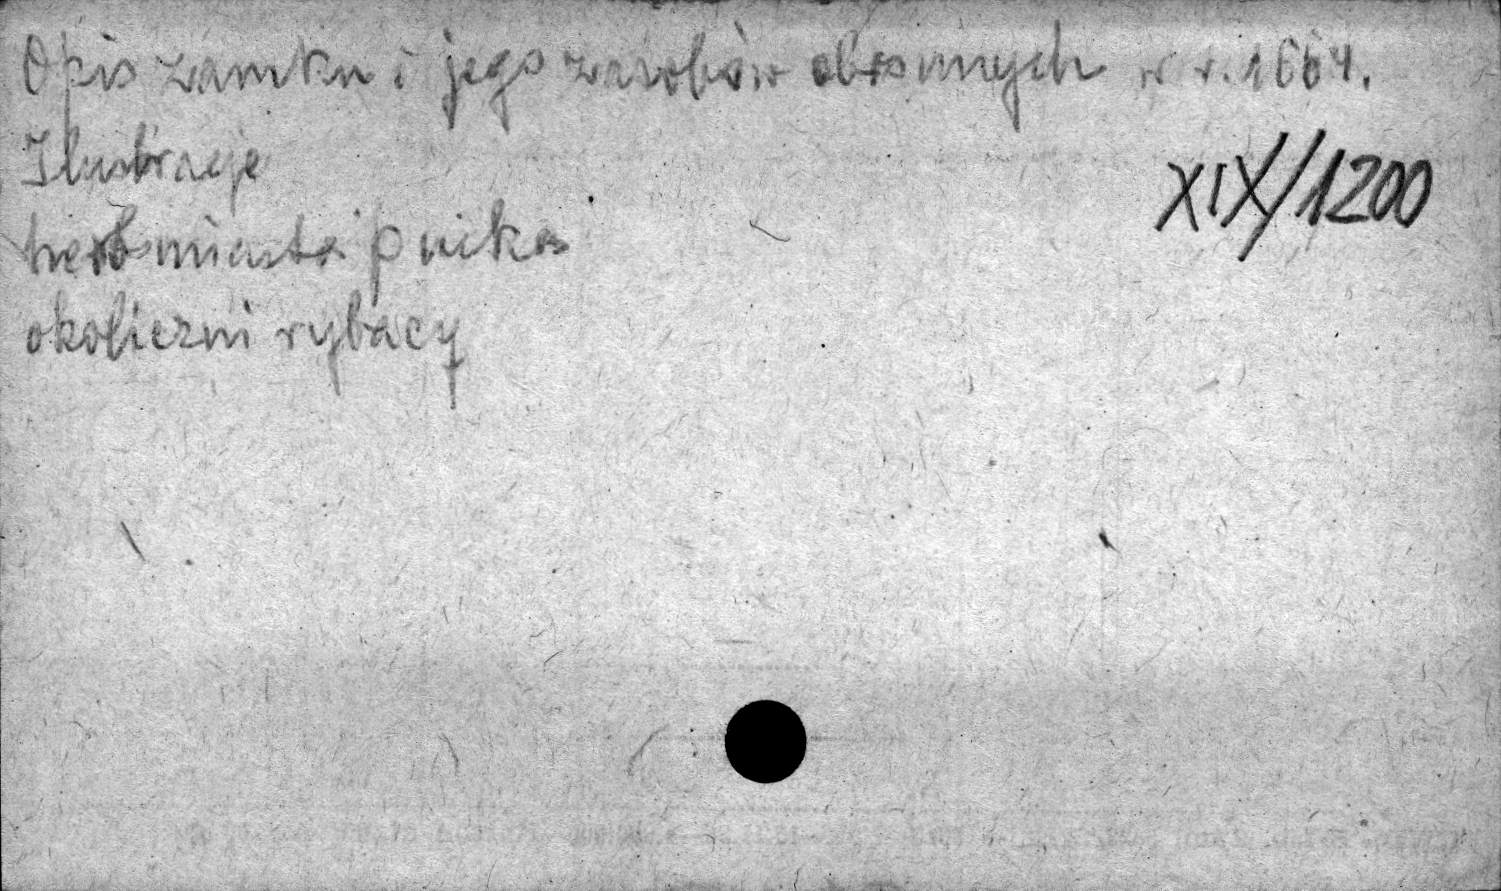 Opis zamku i jego zasobów obronnych w r. 1664.
Ilustracje
XIX/1200
herb miasta pucka
okoliczni rybacy